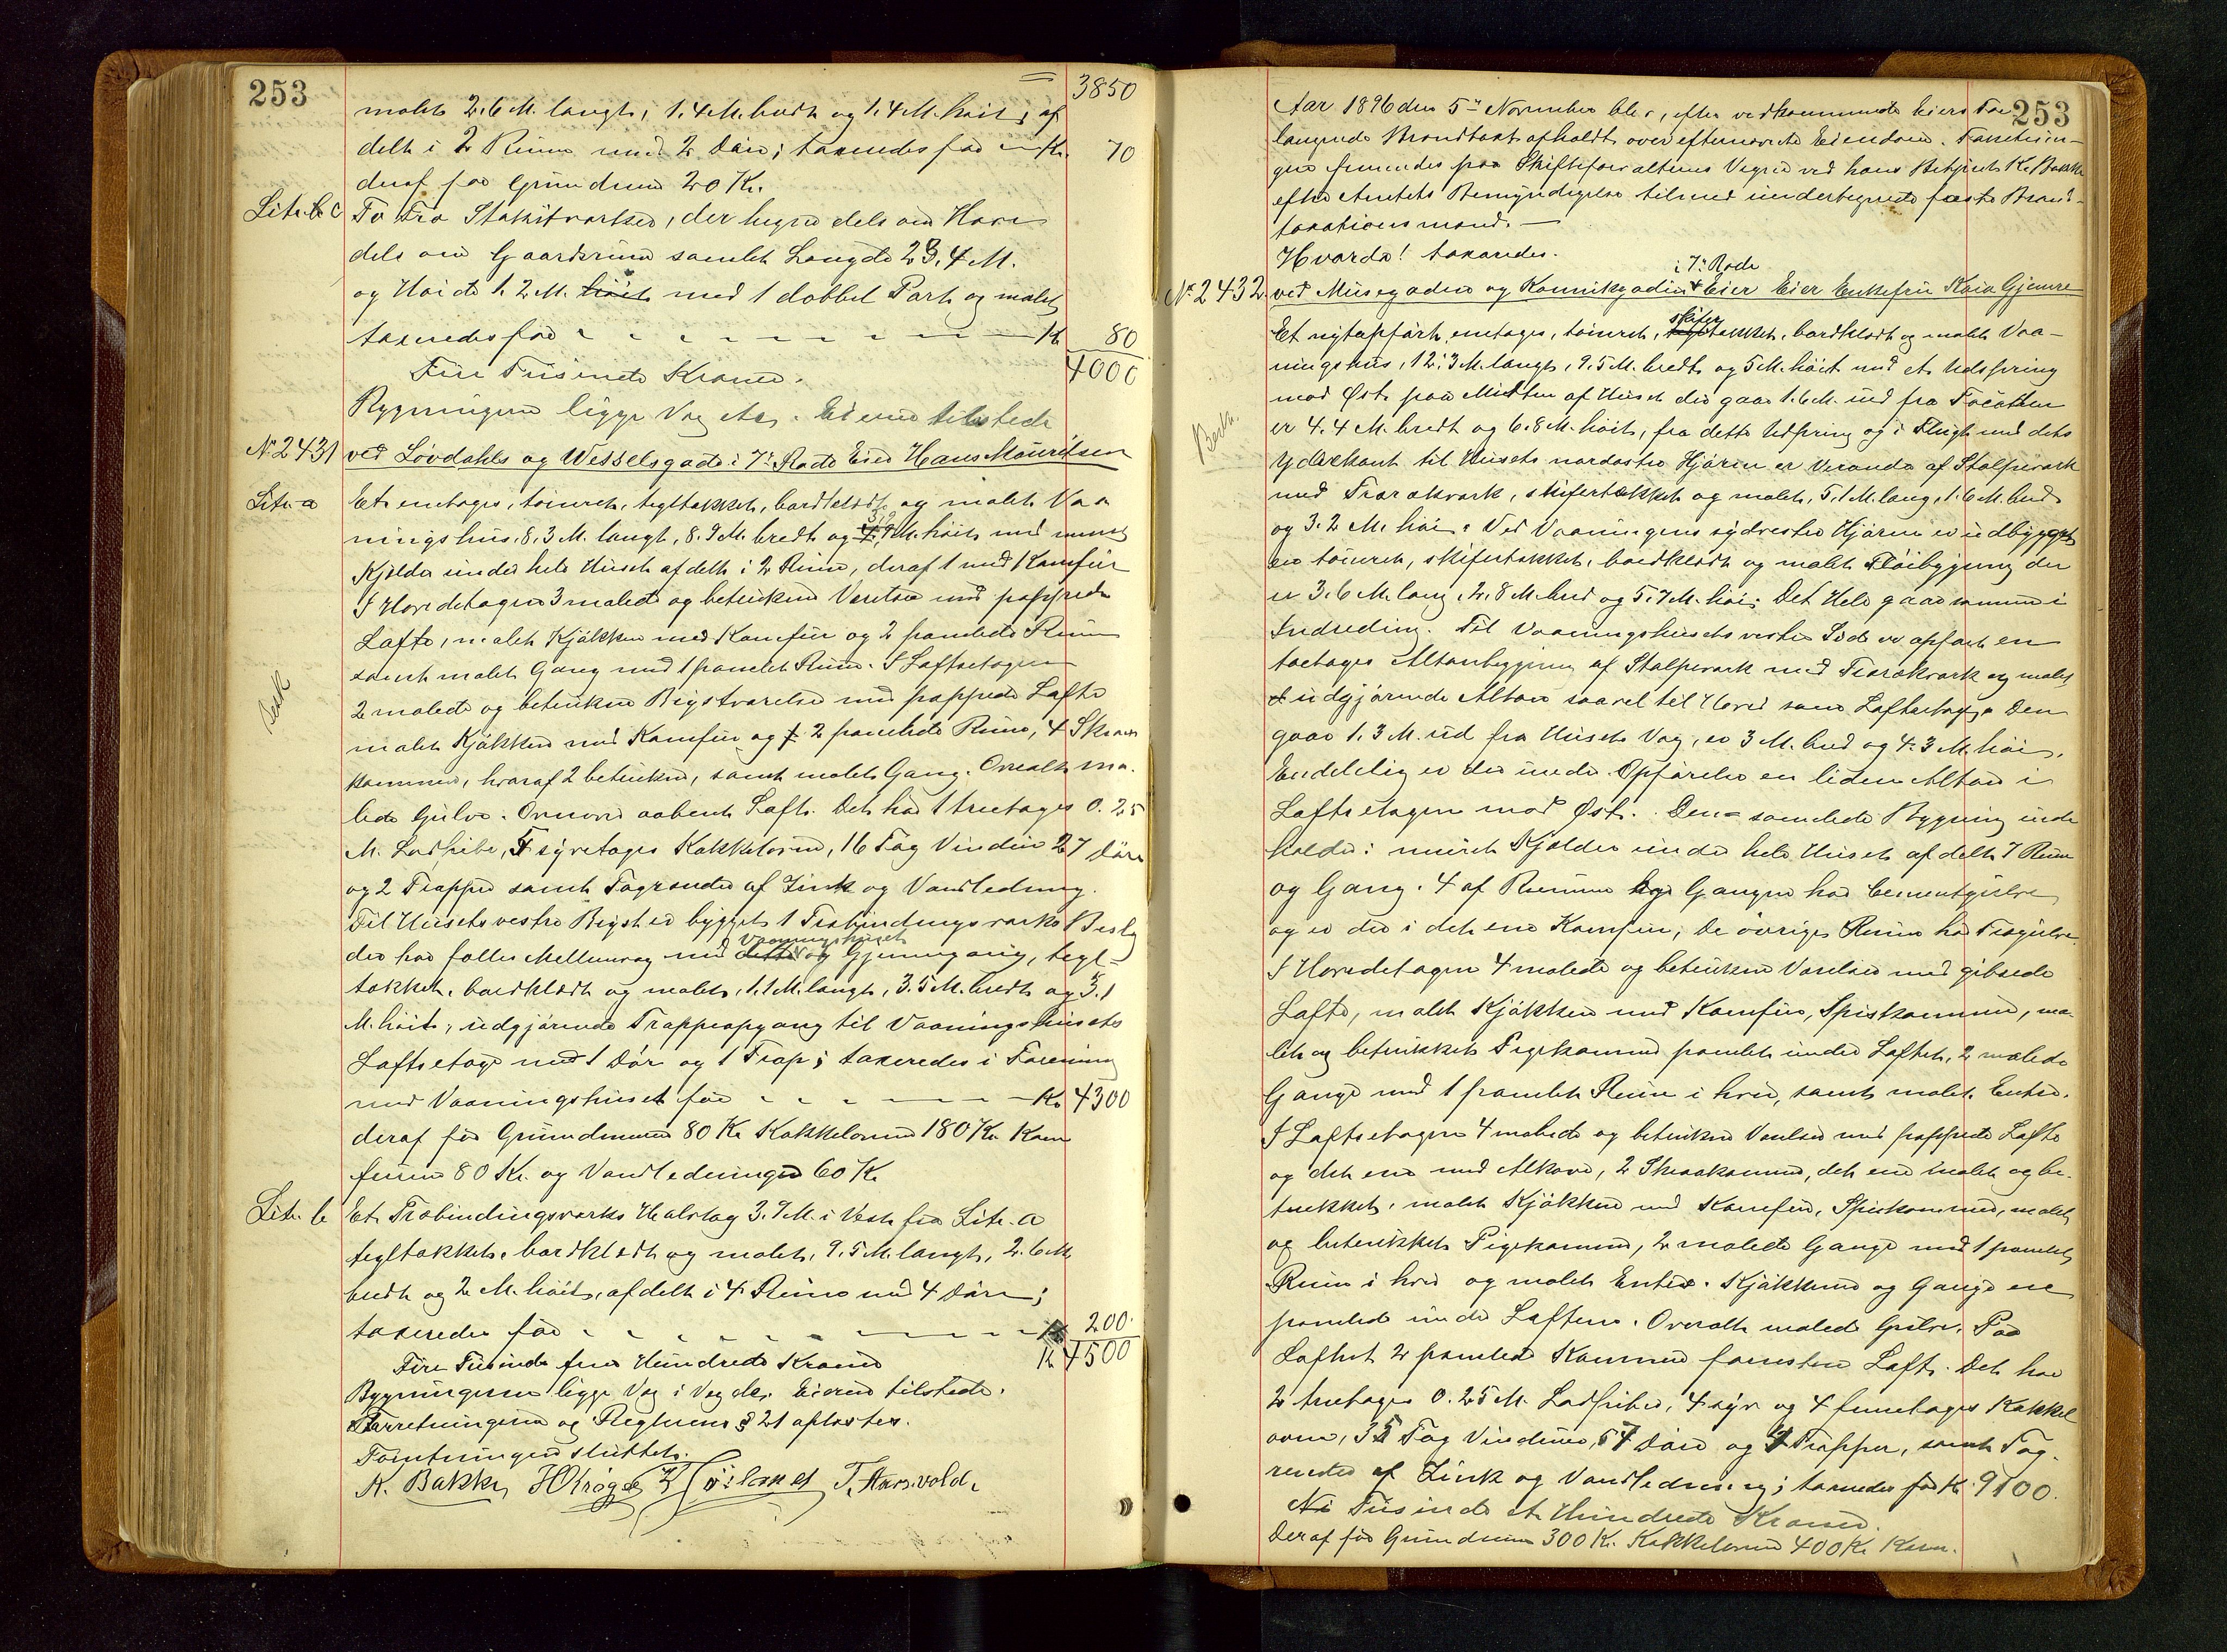 253
= 3850
malet 2.6 M. langt, 1.4 M. bredt og 1.4 M. høit, af
delt i 2 Rum med 2 Døre; taxeredes for — Kr. 70
deraf for Grundmur 20 Kr.
Litr. c To Træ Stakitværker, der hegner dels om Have
dels om Gaardsrum samlet Længde 23.4 M.
og Høide 1.2 M. høit med 1 dobbel Port og malet
taxeredes for — Kr 80
Fire Tusinde Kroner. 4000
Bygningerne ligge Væg Eieren tilstede
No 2431 ved Løvdahls og Wesselsgade i 7de Rode Eier Hans Mauritsen
Litr. a Et enetages, tømret, tegltækket, bordklædt og malet Vaa
ningshus, 8.3 M. langt, 8.9 M. bredt og 3.9 M. høit med muret
Kjelder under hele Huset afdelt i 2 Rum, deraf 1 med Komfur
I Hovedetagen 3 malede og betrukne Værelser med pappede
Lofte, malet Kjøkken med Komfur og 2 panelede Rum
samt malet Gang med 1 panelet Rum. I Loftsetagen
2 malede og betrukne Kvistværelser med pappede Lofte
malet Kjøkken med Komfur og 2 panelede Rum, 4 Skraa
kammer, hvoraf 2 betrukne, samt malet Gang. Overalt ma-
lede Gulve. Ovenover aabent Loft. Det har 1 treetages 0.25
M. Ladpibe, 5 syvetages Kakkelovne, 16 Fag Vinduer 27 Døre
og 2 Trapper samt Tagrender af Zink og Vandledning.
Til Husets vestre Kvist er bygget 1 Træbindingsværks Beslag
der har fælles Mellemvæg med dette Vaaningshuset og Gjennemgang, tegl-
tækket, bordklædt og malet, 1.1 M. langt, 3.5 M. bredt og 3.1
M. høit, udgjørende Trappeopgang til Vaaningshusets
Loftsetage med 1 Dør og 1 Trap; taxeredes i Forening
med Vaaningshuset for — Kr 4300
deraf for Grundmuren 80 Kr Kakkelovne 180 Kr. Kom
furene 80 Kr. og Vandledningen 60 Kr.
Besk
Litr. b Et Træbindingsværks Halvtag 3.7 M. i Vest fra Litr. a
tegltækket, bordklædt og malet, 9.5 M. langt, 2.6 M
bredt og 2 M. høit, afdelt i 4 Rum med 4 Døre;
taxeredes for — 200.
Fire Tusinde fem Hundrede Kroner Kr 4500
Bygningerne ligge Væg i Væg Eieren tilstede.
Forretningen og Reglernes § 21 oplæstes.
Forretningen sluttet.
K. Bakke T. Aarsvold.
253
Aar 1896 den 5te November blev, efter vedkommende Eiers For
langende Brandtaxt afholdt over efternævnte Eiendom. Forretnin-
gen fremmedes paa Skiftsforvalterens Vegne ved hans Betjent K. Bakke
efter Amtets Bemyndigelse tilmed undertegnede faste Brand-
taxationsmænd. —
Hvorda! taxeredes.
No 2432. ved Musegaden og Kannikgaden i 7de Rode Eier Eier Enkefru Kaia Gjemre
Et nyt opført, enetages, tømret, tegl skifertækket, bordklædt og malet Vaa-
ningshus, 12.3 M. langt, 9.5 M. bredt og 5 M. høit med et Udspring
mod Øst paa Midten af Huset der gaar 1.6 M. ud fra Facaden
er 4.4 M. bredt og 6.8 M. høit, fra dette Udspring og i Flugt med dets
Yderkant til Husets nordøstre Hjørne er Veranda af Stolpeværk
med Trærækværk, skifertækket og malet, 5.1 M. lang, 1.6 M. bred
og 3.2 M. høi. Ved Vaaningens sydvestre Hjørne er udbygget
en tømret, skifertækket, bordklædt og malet Fløibygning der
er 3.6 M. lang, 2.8 M. bred og 5.7 M. høi; Det Hele gaar sammen i
Indreding. Til Vaaningshusets vestre Side er opført en
toetages Altanbygning af Stolpeværk med Trærækværk og malet
udgjørende Altan saavel til Hoved som Loftsetage. Den
gaar 1.3 M. ud fra Husets Væg, er 3 M. bred og 4.3 M. høi.
Endelig er der under Opførelse en liden Altan i
Loftsetagen mod Øst. Den samlede Bygning inde
holder: muret Kjelder under hele Huset afdelt 7 Rum
og Gang. 4 af Rummene og Gangen har Cementgulve
og er der i det ene Komfur, De øvrige Rum har Trægulve.
I Hovedetagen 4 malede og betrukne Værelser med gibsede
Lofte, malet Kjøkken med Komfur, Spiskammer, ma-
let og betrukket Pigekammer panelet under Loftet, 2 malede
Gange med 1 panelet Rum i hver, samt malet Entre.
I Loftsetagen 4 malede og betrukne Værelser med pappede Lofte
og det ene med Alkove, 2 Skraakammer, det ene malet og be-
trukket, malet Kjøkken med Komfur, Spiskammer, malet
og betrukket Pigekammer, 2 malede Gange med 1 panelet
Rum i hver og malet Entre. Kjøkkener og Gange ere
panelede under Loftene. Overalt malede Gulve. Paa
Loftet 2 panelede Kammer forresten Loft. Det har
2 treetages 0.25 M. Ladpiber, 4 syv og 4 femetages Kakkel
ovne, 35 Fag Vinduer, 57 Døre og 4 Trapper, samt Tag-
render af Zink og Vandledning; taxeredes for Kr. 9100.
Ni Tusinde et Hundrede Kroner.
Deraf for Grundmur 300 Kr. Kakkelovne 400 Kr Kom-